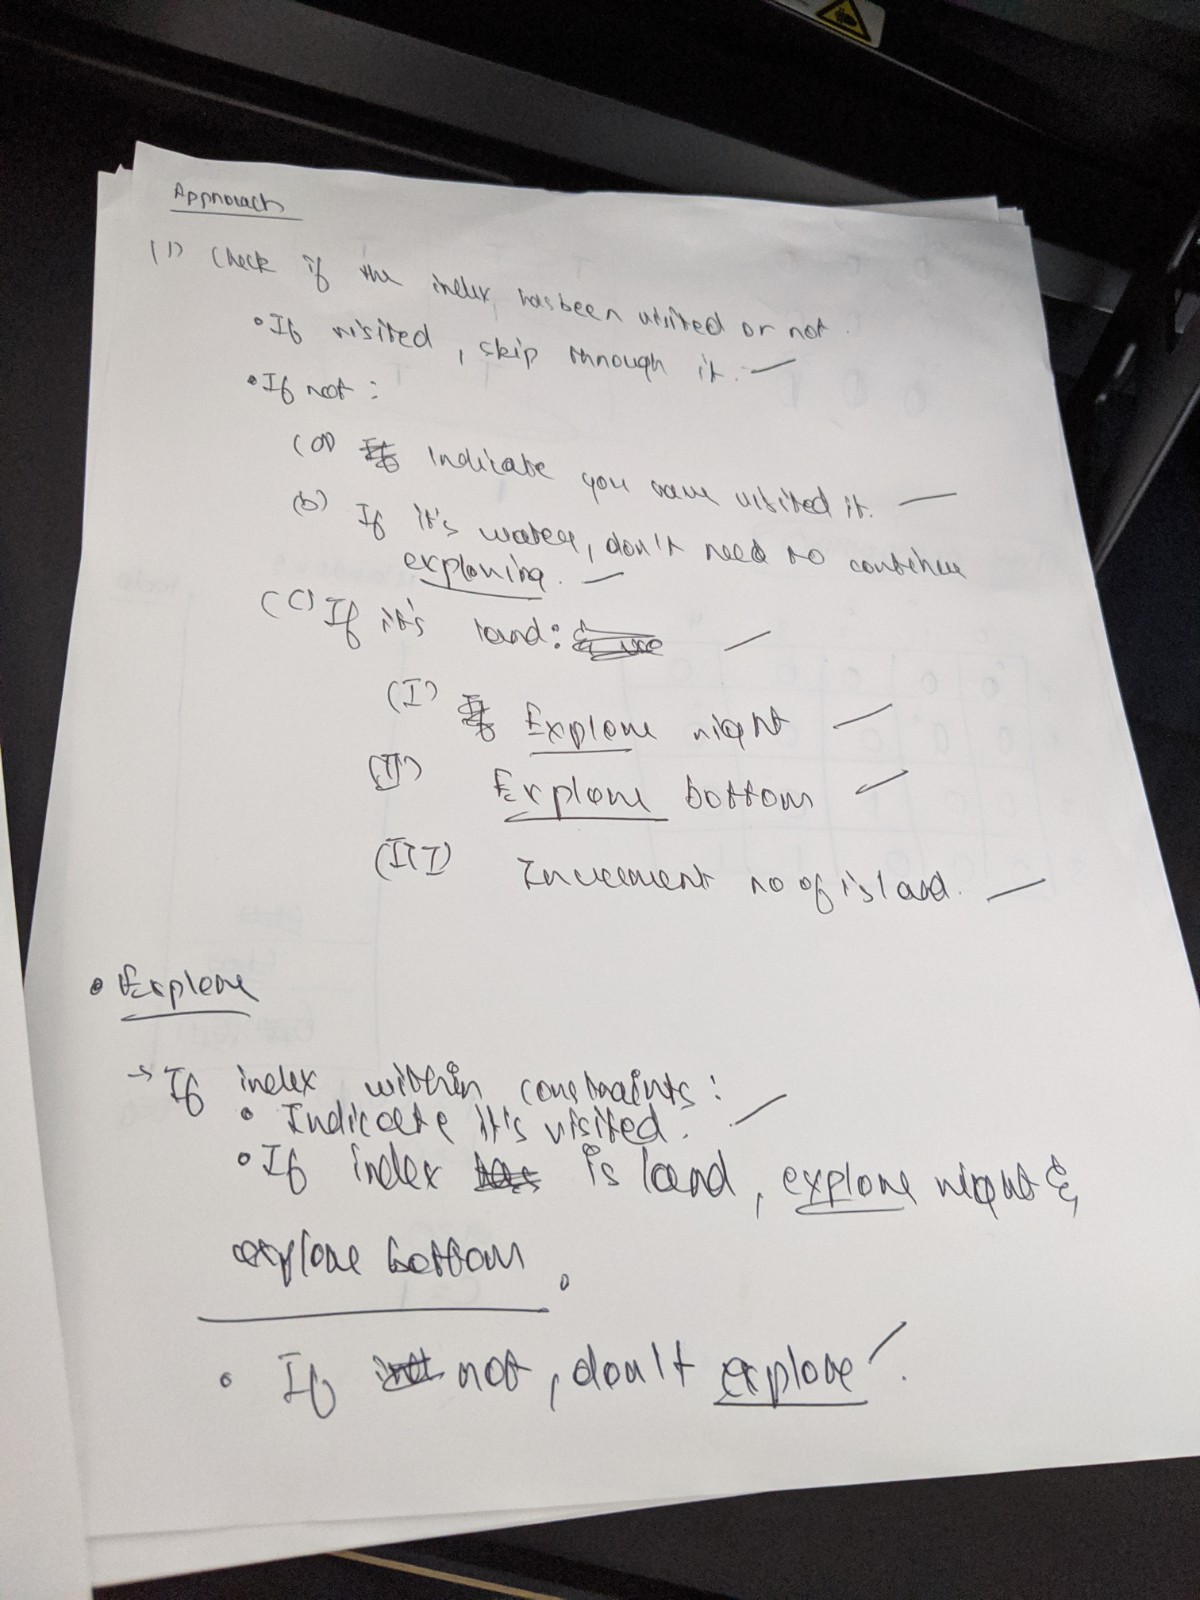 Approach
(1) Check if the index has been visited or not.
• If visited, skip through it.
• If not:
(a) Indicate you have visited it.
(b) If it's water, don't need to continue
exploring.
(c) If it's land:
(I) Explore right
(II) Explore bottom
(III) Increment no of island.
• Explore
→ If index within constraints:
• Indicate it's visited.
• If index is land, explore right &
explore bottom.
• If not, don't explore.